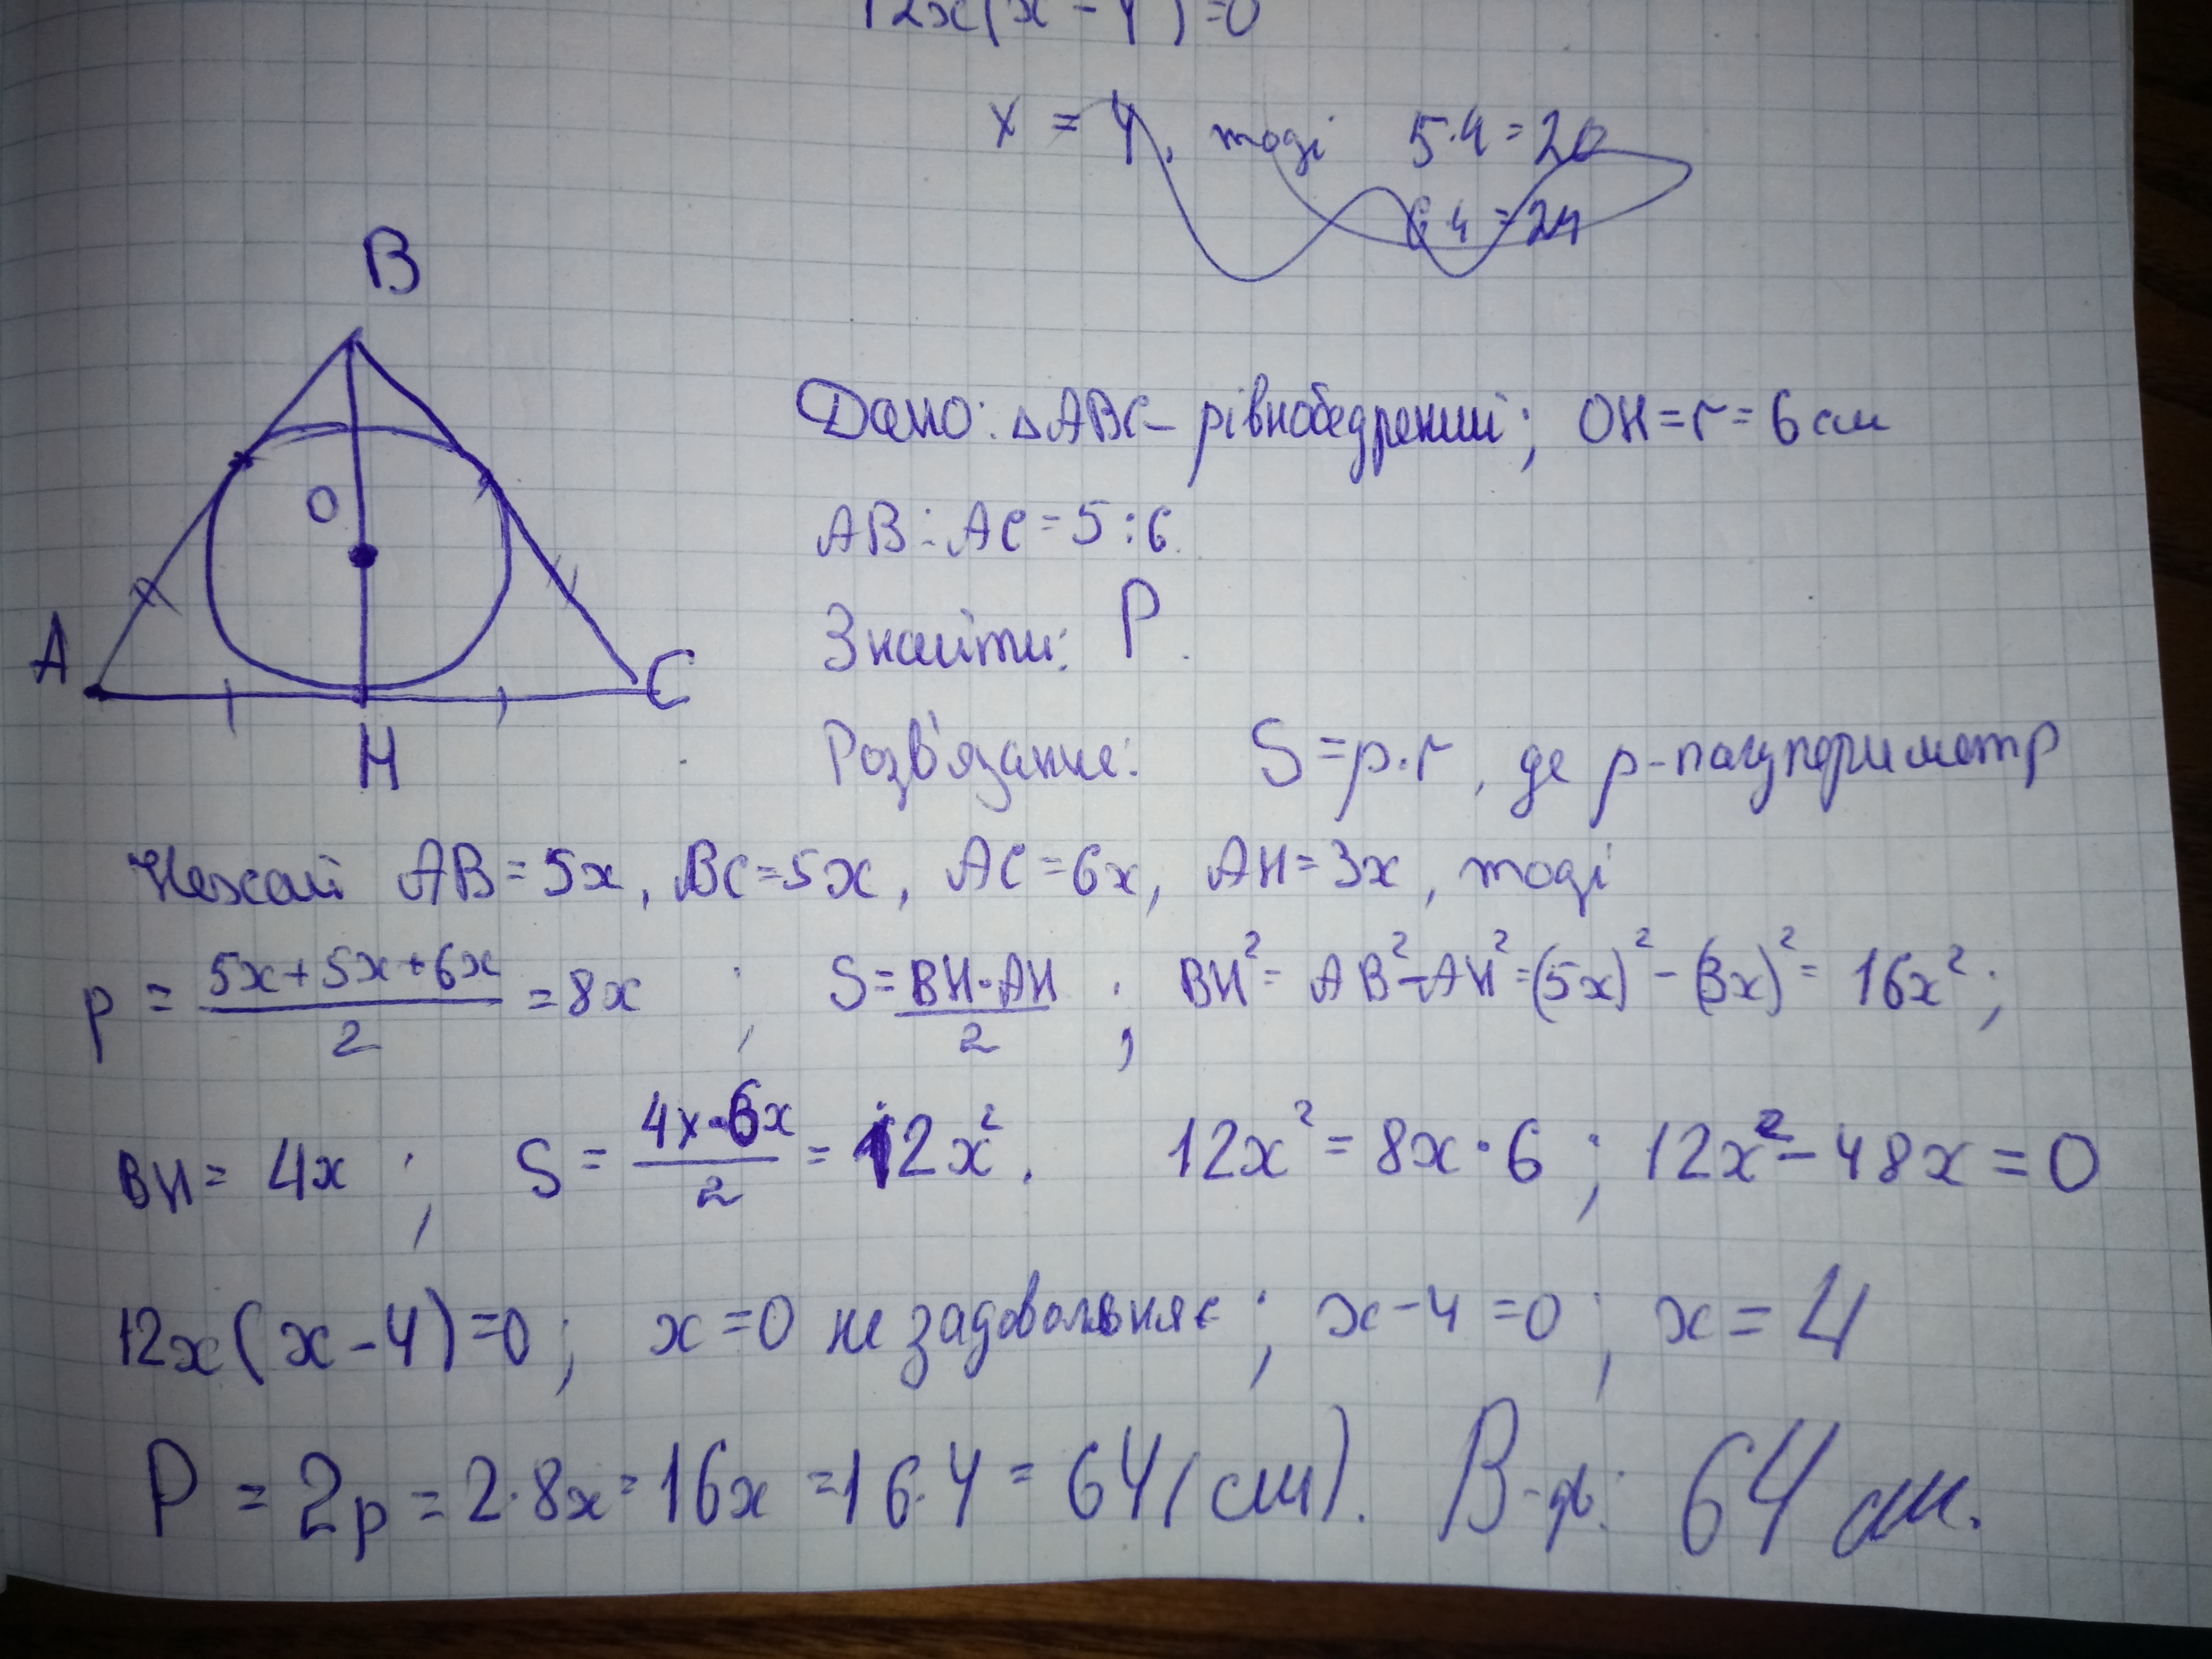 12x(x-4)=0
x = 4, тоді 5·4=20
6·4=24
B
Дано: △ABC - рівнобедрений; OH=r=6см
O
AB:AC=5:6.
Знайти: P.
A
C
H
Розв'язання: S=p·r, де p-полупериметр
Нехай AB=5x, BC=5x, AC=6x, AH=3x, тоді
p = (5x+5x+6x)/2 = 8x ; S = (BH·AH)/2 ; BH²= AB²-AH²=(5x)²-(3x)²= 16x²;
BH= 4x ; S = (4x·6x)/2 = 12x². 12x²=8x·6 ; 12x²-48x=0
12x(x-4)=0; x=0 не задовольняє; x-4=0; x=4
P = 2p=2·8x=16x=16·4=64(см). В-дь: 64 см.